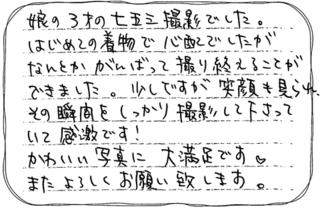 娘の3才の七五三撮影でした。
はじめての着物で心配でしたが
なんとかがんばって撮り終えることが
できました。少しですが笑顔も見られ、
その瞬間をしっかり撮影して下さって
いて感激です!
かわいい写真に大満足です♡
またよろしくお願い致します。